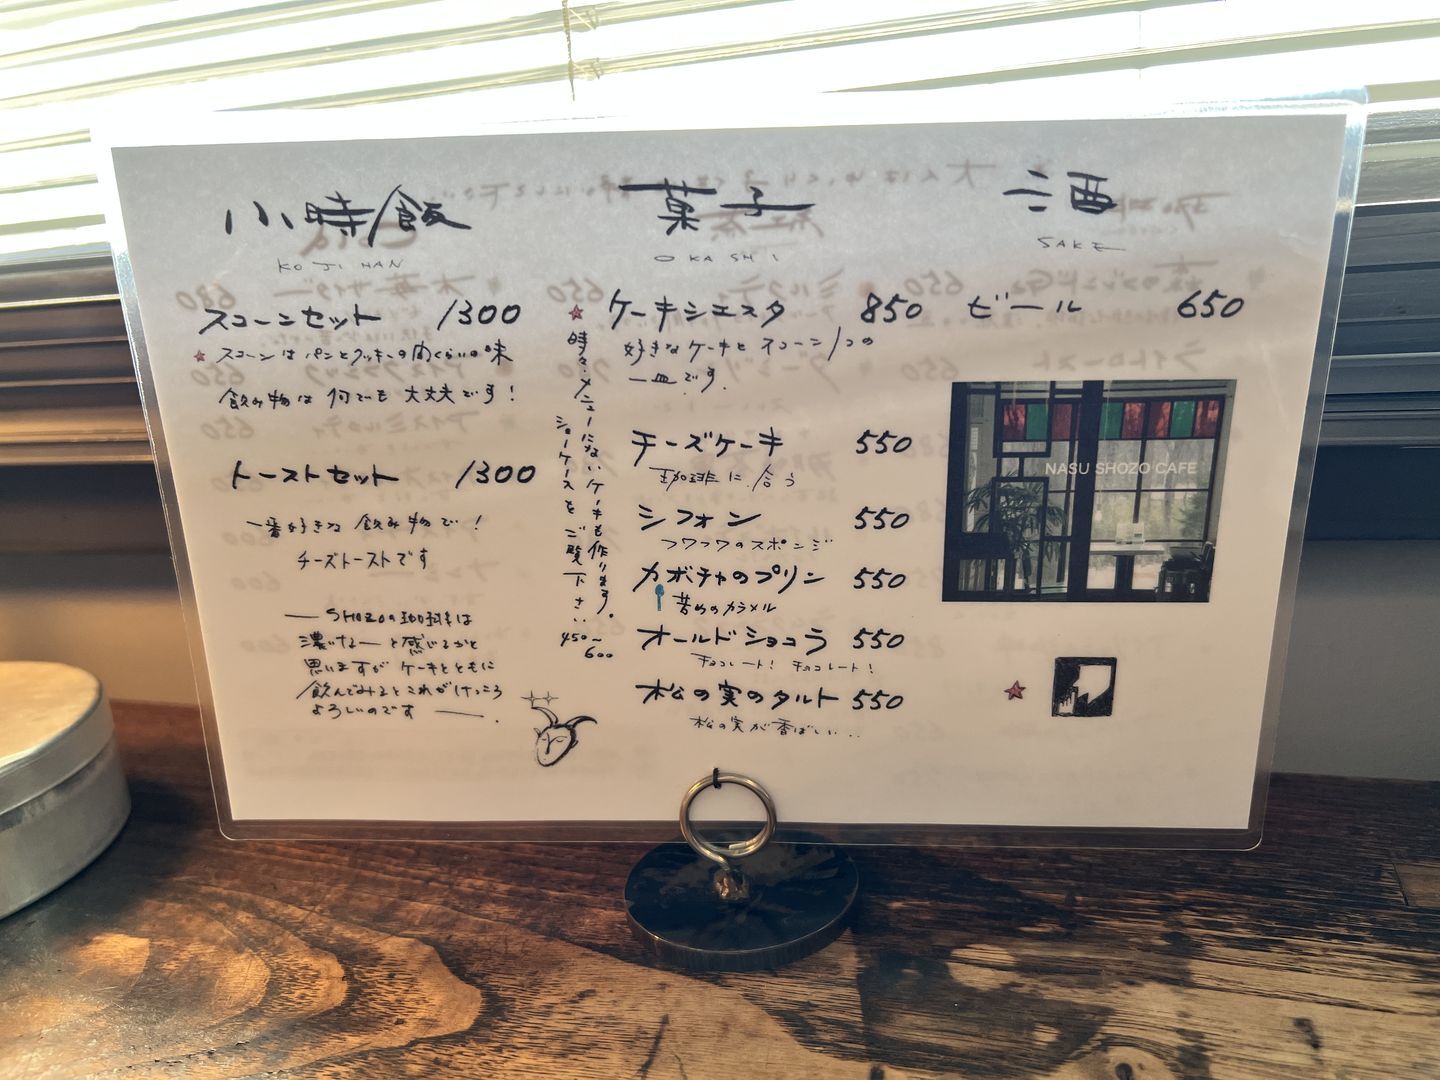 小時飯
KOJIHAN
スコーンセット 1300
★ スコーンは パンとクッキーの間くらいの味
飲み物は 何でも 大丈夫です!
トーストセット 1300
一番好きな 飲み物で!
チーズトーストです
― SHOZOの珈琲は
濃いなーと感じるかと
思いますが ケーキとともに
飲んでみるとこれがけっこう
よろしいのです ―.
菓子
OKASHI
★ ケーキシエスタ 850
好きなケーキと スコーン1つの
一皿です.
時々、メニューにないケーキも作ります。
ショーケースをご覧下さい
450~
600
チーズケーキ 550
珈琲に合う
シフォン 550
フワフワのスポンジ
カボチャのプリン 550
苦めのカラメル
オールドショコラ 550
チョコレート! チョコレート!
松の実のタルト 550
松の実が香ばしい...
酒
SAKE
ビール 650
NASU SHOZO CAFE